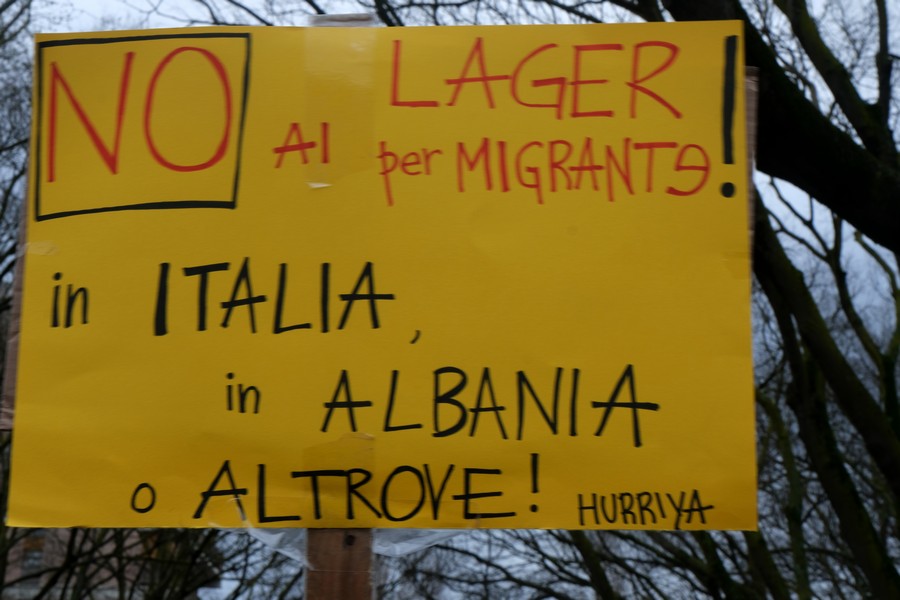 NO AI LAGER!
per MIGRANTə
in ITALIA,
in ALBANIA
o ALTROVE! HURRIYA